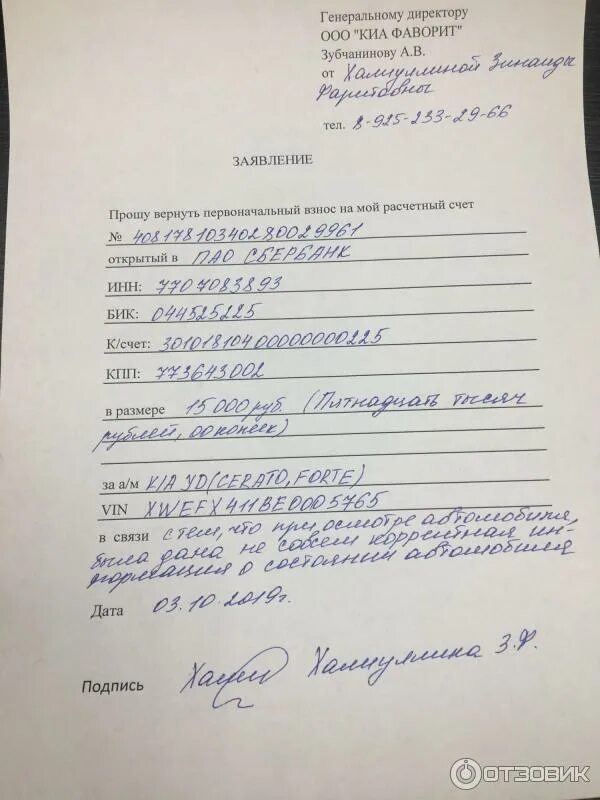 Генеральному директору
ООО "КИА ФАВОРИТ"
Зубчанинову А.В.
от Халиуллиной Зинаиды
Фаритовны
тел. 8-925-233-29-66
ЗАЯВЛЕНИЕ
Прошу вернуть первоначальный взнос на мой расчетный счет
№ 40817810340280029961
открытый в ПАО СБЕРБАНК
ИНН: 7707083893
БИК: 044525225
К/счет: 30101810400000000225
КПП: 773643002
в размере 15 000 руб. (Пятнадцать тысяч
рублей, 00 копеек)
за а/м KIA YD (CERATO, FORTE)
VIN XWEFX411BE0005765
в связи с тем, что при осмотре автомобиля,
была дана не совсем корректная ин-
формация о состоянии автомобиля
Дата 03.10.2019г.
Подпись Халиуллина З.Ф.
ОТЗОВИК